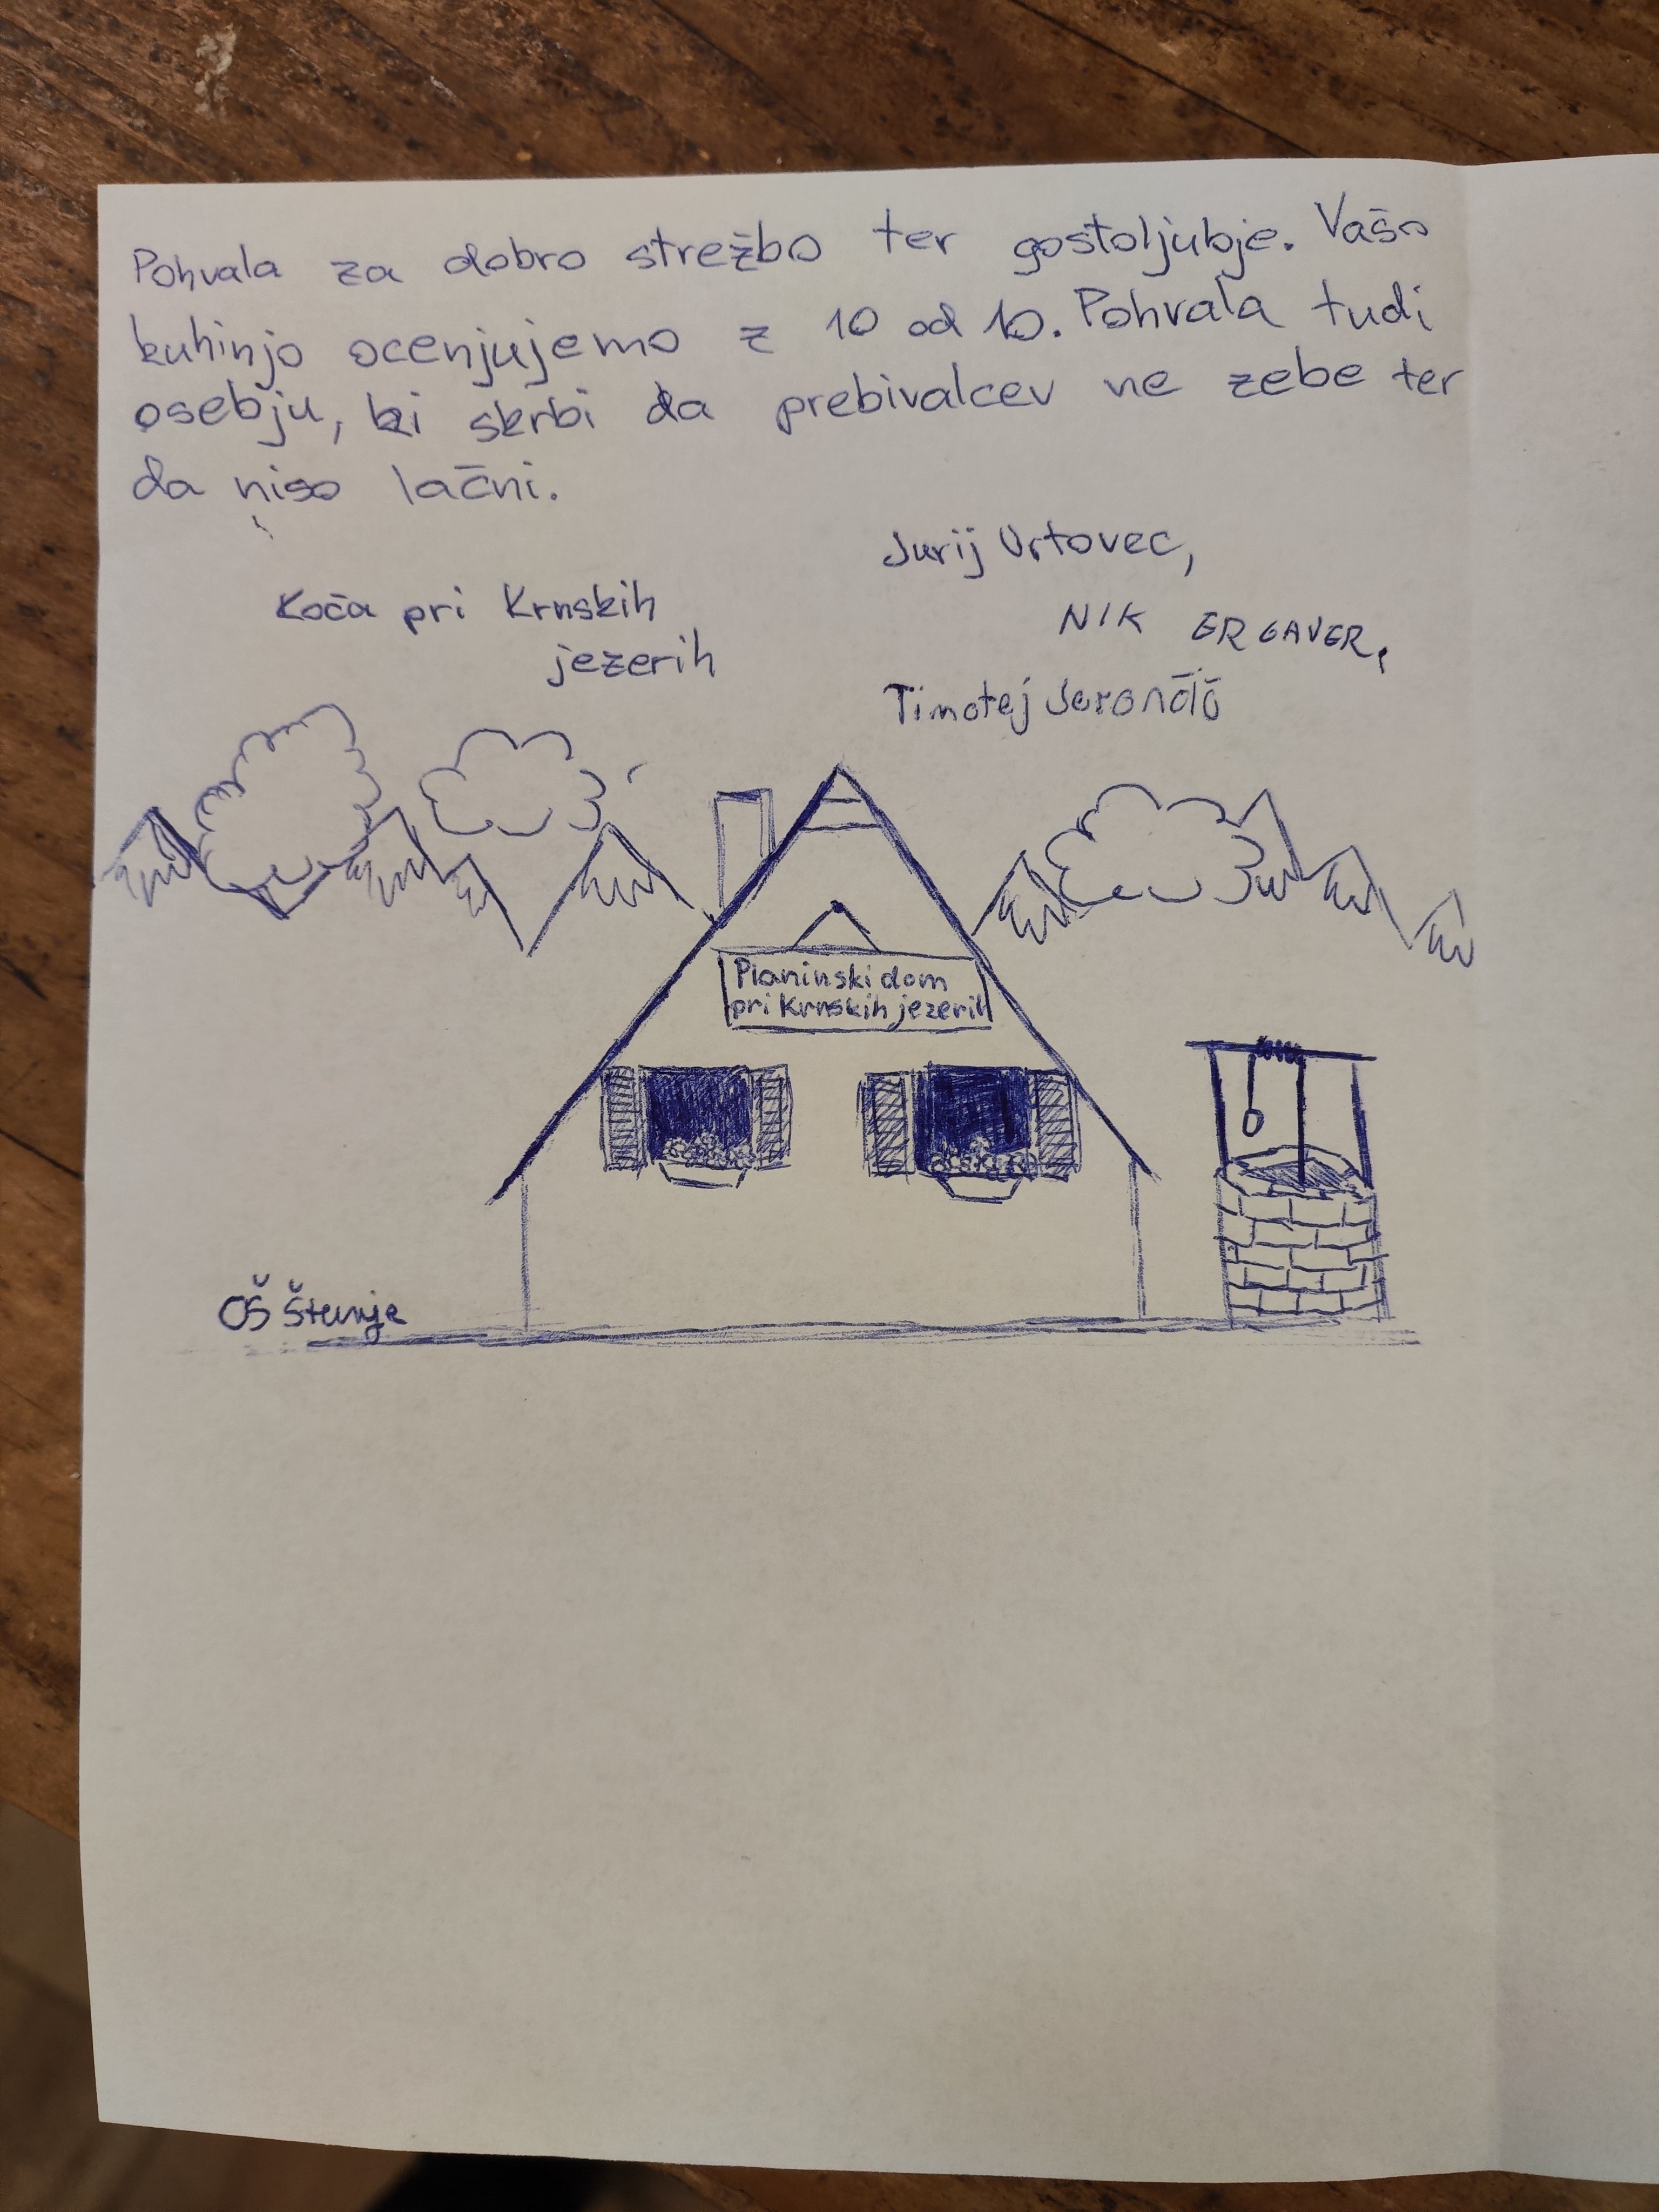 Pohvala za dobro strežbo ter gostoljubje. Vašo
kuhinjo ocenjujemo z 10 od 10. Pohvala tudi
osebju, ki skrbi da prebivalcev ne zebe ter
da niso lačni.
Jurij Vrtovec,
Koča pri Krnskih
jezerih
NIK ERGAVER,
Timotej
Planinski dom
pri Krnskih jezerih
OŠ Šturje